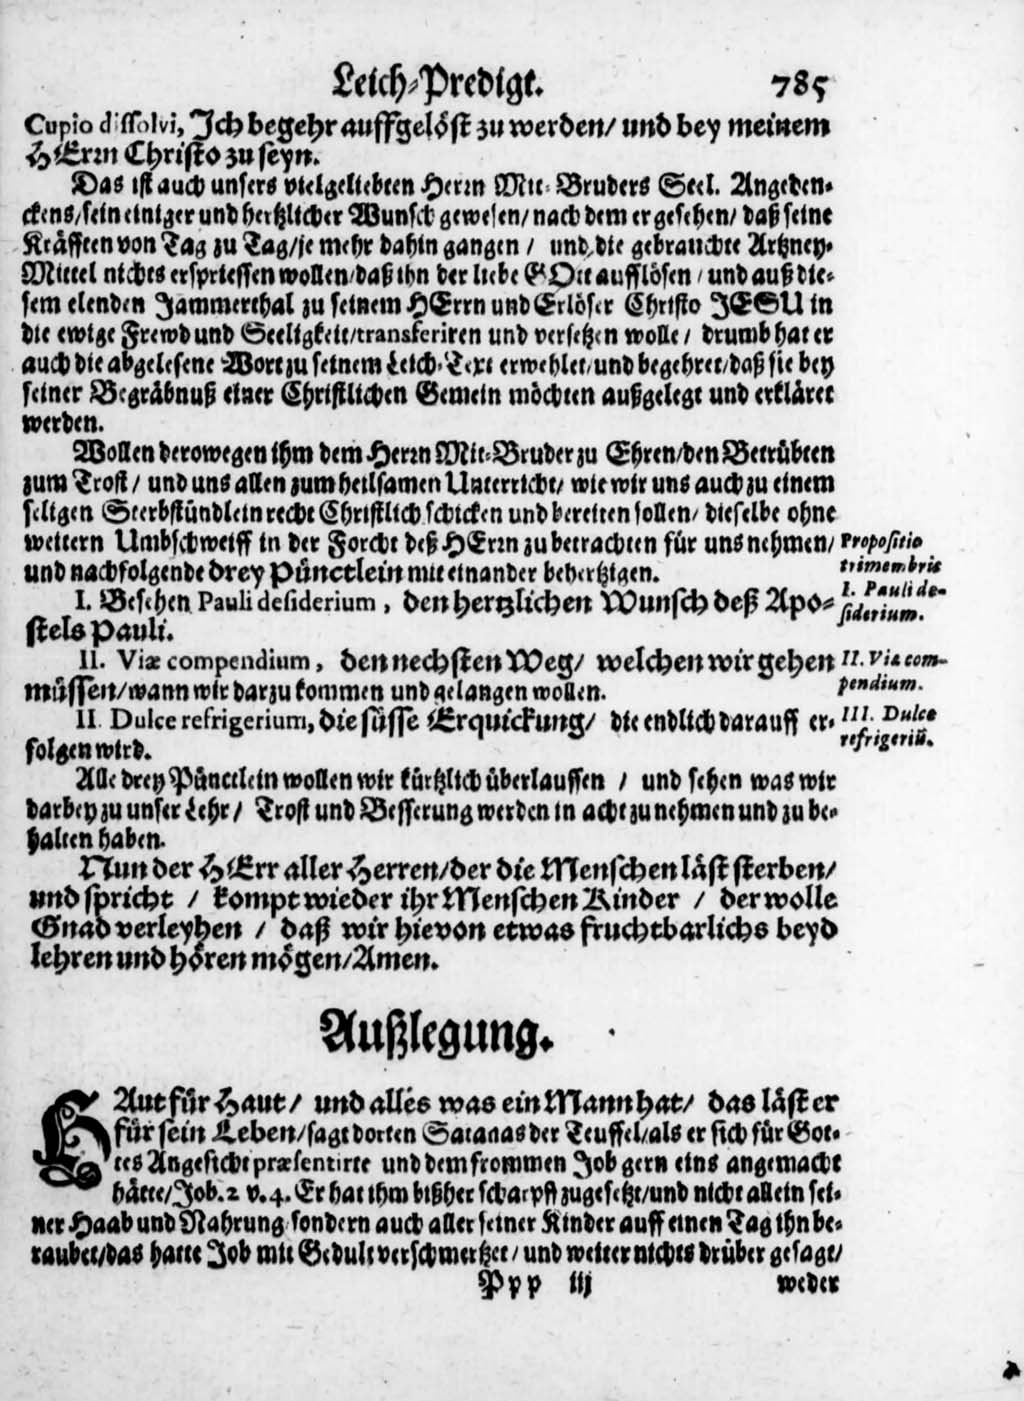 Leich-Predigt. 785
Cupio dissolvi, Ich begehr auffgelöst zu werden/ und bey meinem
HErrn Christo zu seyn.
Das ist auch unsers vielgeliebten Herrn Mit-Bruders Seel. Angeden-
ckens/ sein einiger und hertzlicher Wunsch gewesen/ nach dem er gesehen/ daß seine
Kräfften von Tag zu Tag/ je mehr dahin gangen / und die gebrauchte Artzney-
Mittel nichts erspriessen wollen/ daß ihn der liebe GOtt aufflösen / und auß die-
sem elenden Jammerthal zu seinem HErrn und Erlöser Christo JESU in
die ewige Frewd und Seeligkeit/ transferiren und versetzen wolle / drumb hat er
auch die abgelesene Wort zu seinem Leich-Text erwehlet/ und begehret/ daß sie bey
seiner Begräbnuß einer Christlichen Gemein möchten außgelegt und erkläret
werden.
Wollen derowegen ihm dem Herrn Mit-Bruder zu Ehren/ den Betrübten
zum Trost / und uns allen zum heilsamen Unterricht/ wie wir uns auch zu einem
seligen Sterbstündlein recht Christlich schicken und bereiten sollen/ dieselbe ohne
weitern Umbschweiff in der Forcht deß HErrn zu betrachten für uns nehmen/
und nachfolgende drey Pünctlein mit einander behertzigen.
Propositio
trimembris
I. Besehen Pauli desiderium, den hertzlichen Wunsch deß Apo-
stels Pauli.
I. Pauli de-
siderium.
II. Viæ compendium, den nechsten Weg/ welchen wir gehen
müssen/ wann wir darzu kommen und gelangen wollen.
II. Viæ com-
pendium.
II. Dulce refrigerium, die süsse Erquickung/ die endlich darauff er-
folgen wird.
III. Dulce
refrigeriũ.
Alle drey Pünctlein wollen wir kürtzlich überlauffen / und sehen was wir
darbey zu unser Lehr / Trost und Besserung werden in acht zu nehmen und zu be-
halten haben.
Nun der HErr aller Herren/ der die Menschen läst sterben/
und spricht / kompt wieder ihr Menschen Kinder / der wolle
Gnad verleyhen / daß wir hievon etwas fruchtbarlichs beyd
lehren und hören mögen/ Amen.
Außlegung.
HAut für Haut / und alles was ein Mann hat/ das läst er
für sein Leben/ sagt dorten Satanas der Teuffel/ als er sich für Got-
tes Angesicht præsentirte und dem frommen Job gern eins angemacht
hätte/ Job. 2 v. 4. Er hat ihm bißher scharpff zugesetzt/ und nicht allein sei-
ner Haab und Nahrung sondern auch aller seiner Kinder auff einen Tag ihn be-
raubet/ das hatte Job mit Gedult verschmertzet / und weiter nichts drüber gesagt/
Ppp iij weder